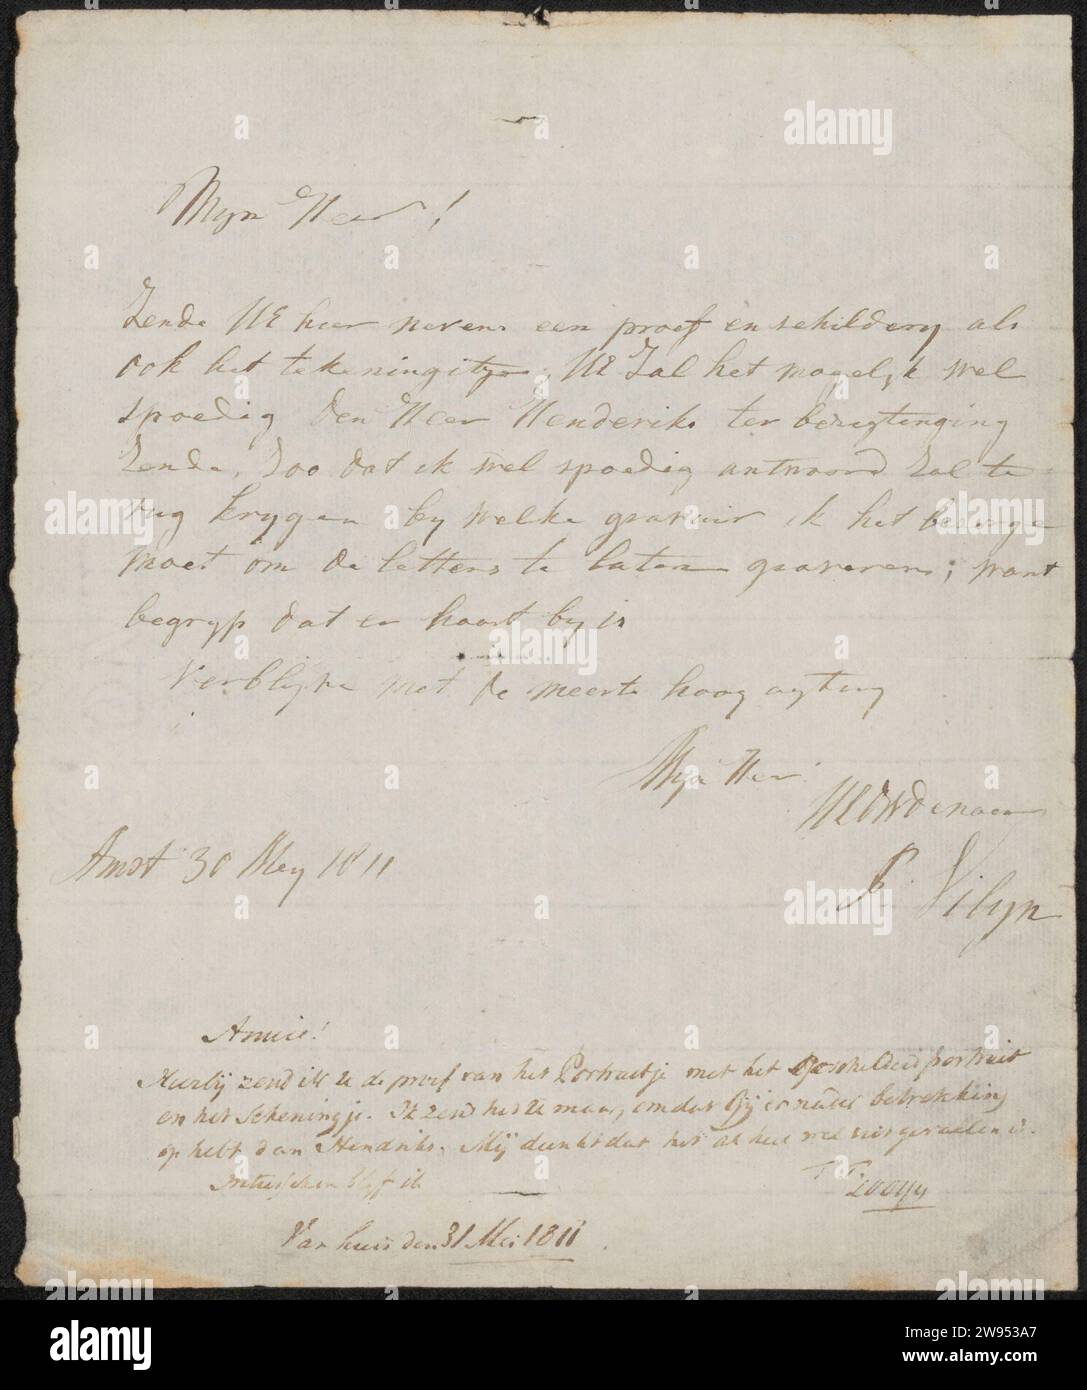 Myn Heer!
Zende UE hier nevens een proef en schildery als
ook het tekeningitje, UE Zal het mogelyk wel
spoedig den Heer Henderiks ter bezigtenging
Zende, Zoo dat ik wel spoedig antwoord Zal te
rug krygen by welke graveur ik het bezorge
moet om de letters te laten graveren; want
begryp dat er haast by is
Verblyve met de meeste hoog agting
Myn Heer
UEDWDenaar
Amst 30 Mey 1811
P. Velyn
Amice!
Hierbij zend ik U de proef van het Portraitje met het geschilderd portrait
en het tekeningje. Ik zend het U maar, omdat Gij er nader betrekking
op hebt dan Hendriks. Mij dunkt dat het al heel wel uitgevallen is.
blijf ik
Van huis den 31 Mei 1811
alamy
alamy
alamy
alamy
alamy
alamy
Image ID: 2W953A7
www.alamy.com